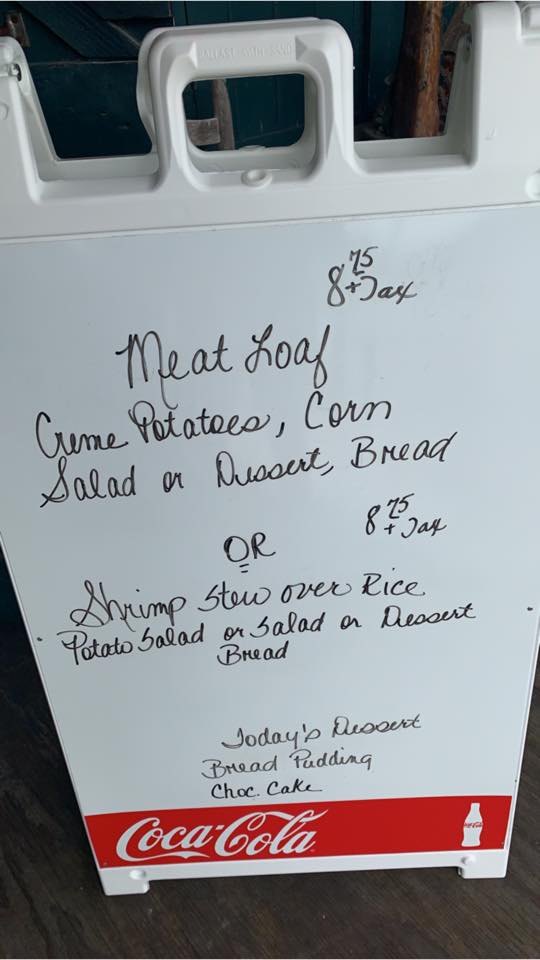 BALLAST WITH SAND
8 75
+ Tax
Meat Loaf
Creme Potatoes, Corn
Salad or Dessert, Bread
8 75
+ Tax
OR
Shrimp Stew over Rice
Potato Salad or Salad or Dessert
Bread
Today's Dessert
Bread Pudding
Choc. Cake
Coca-Cola
Coca-Cola